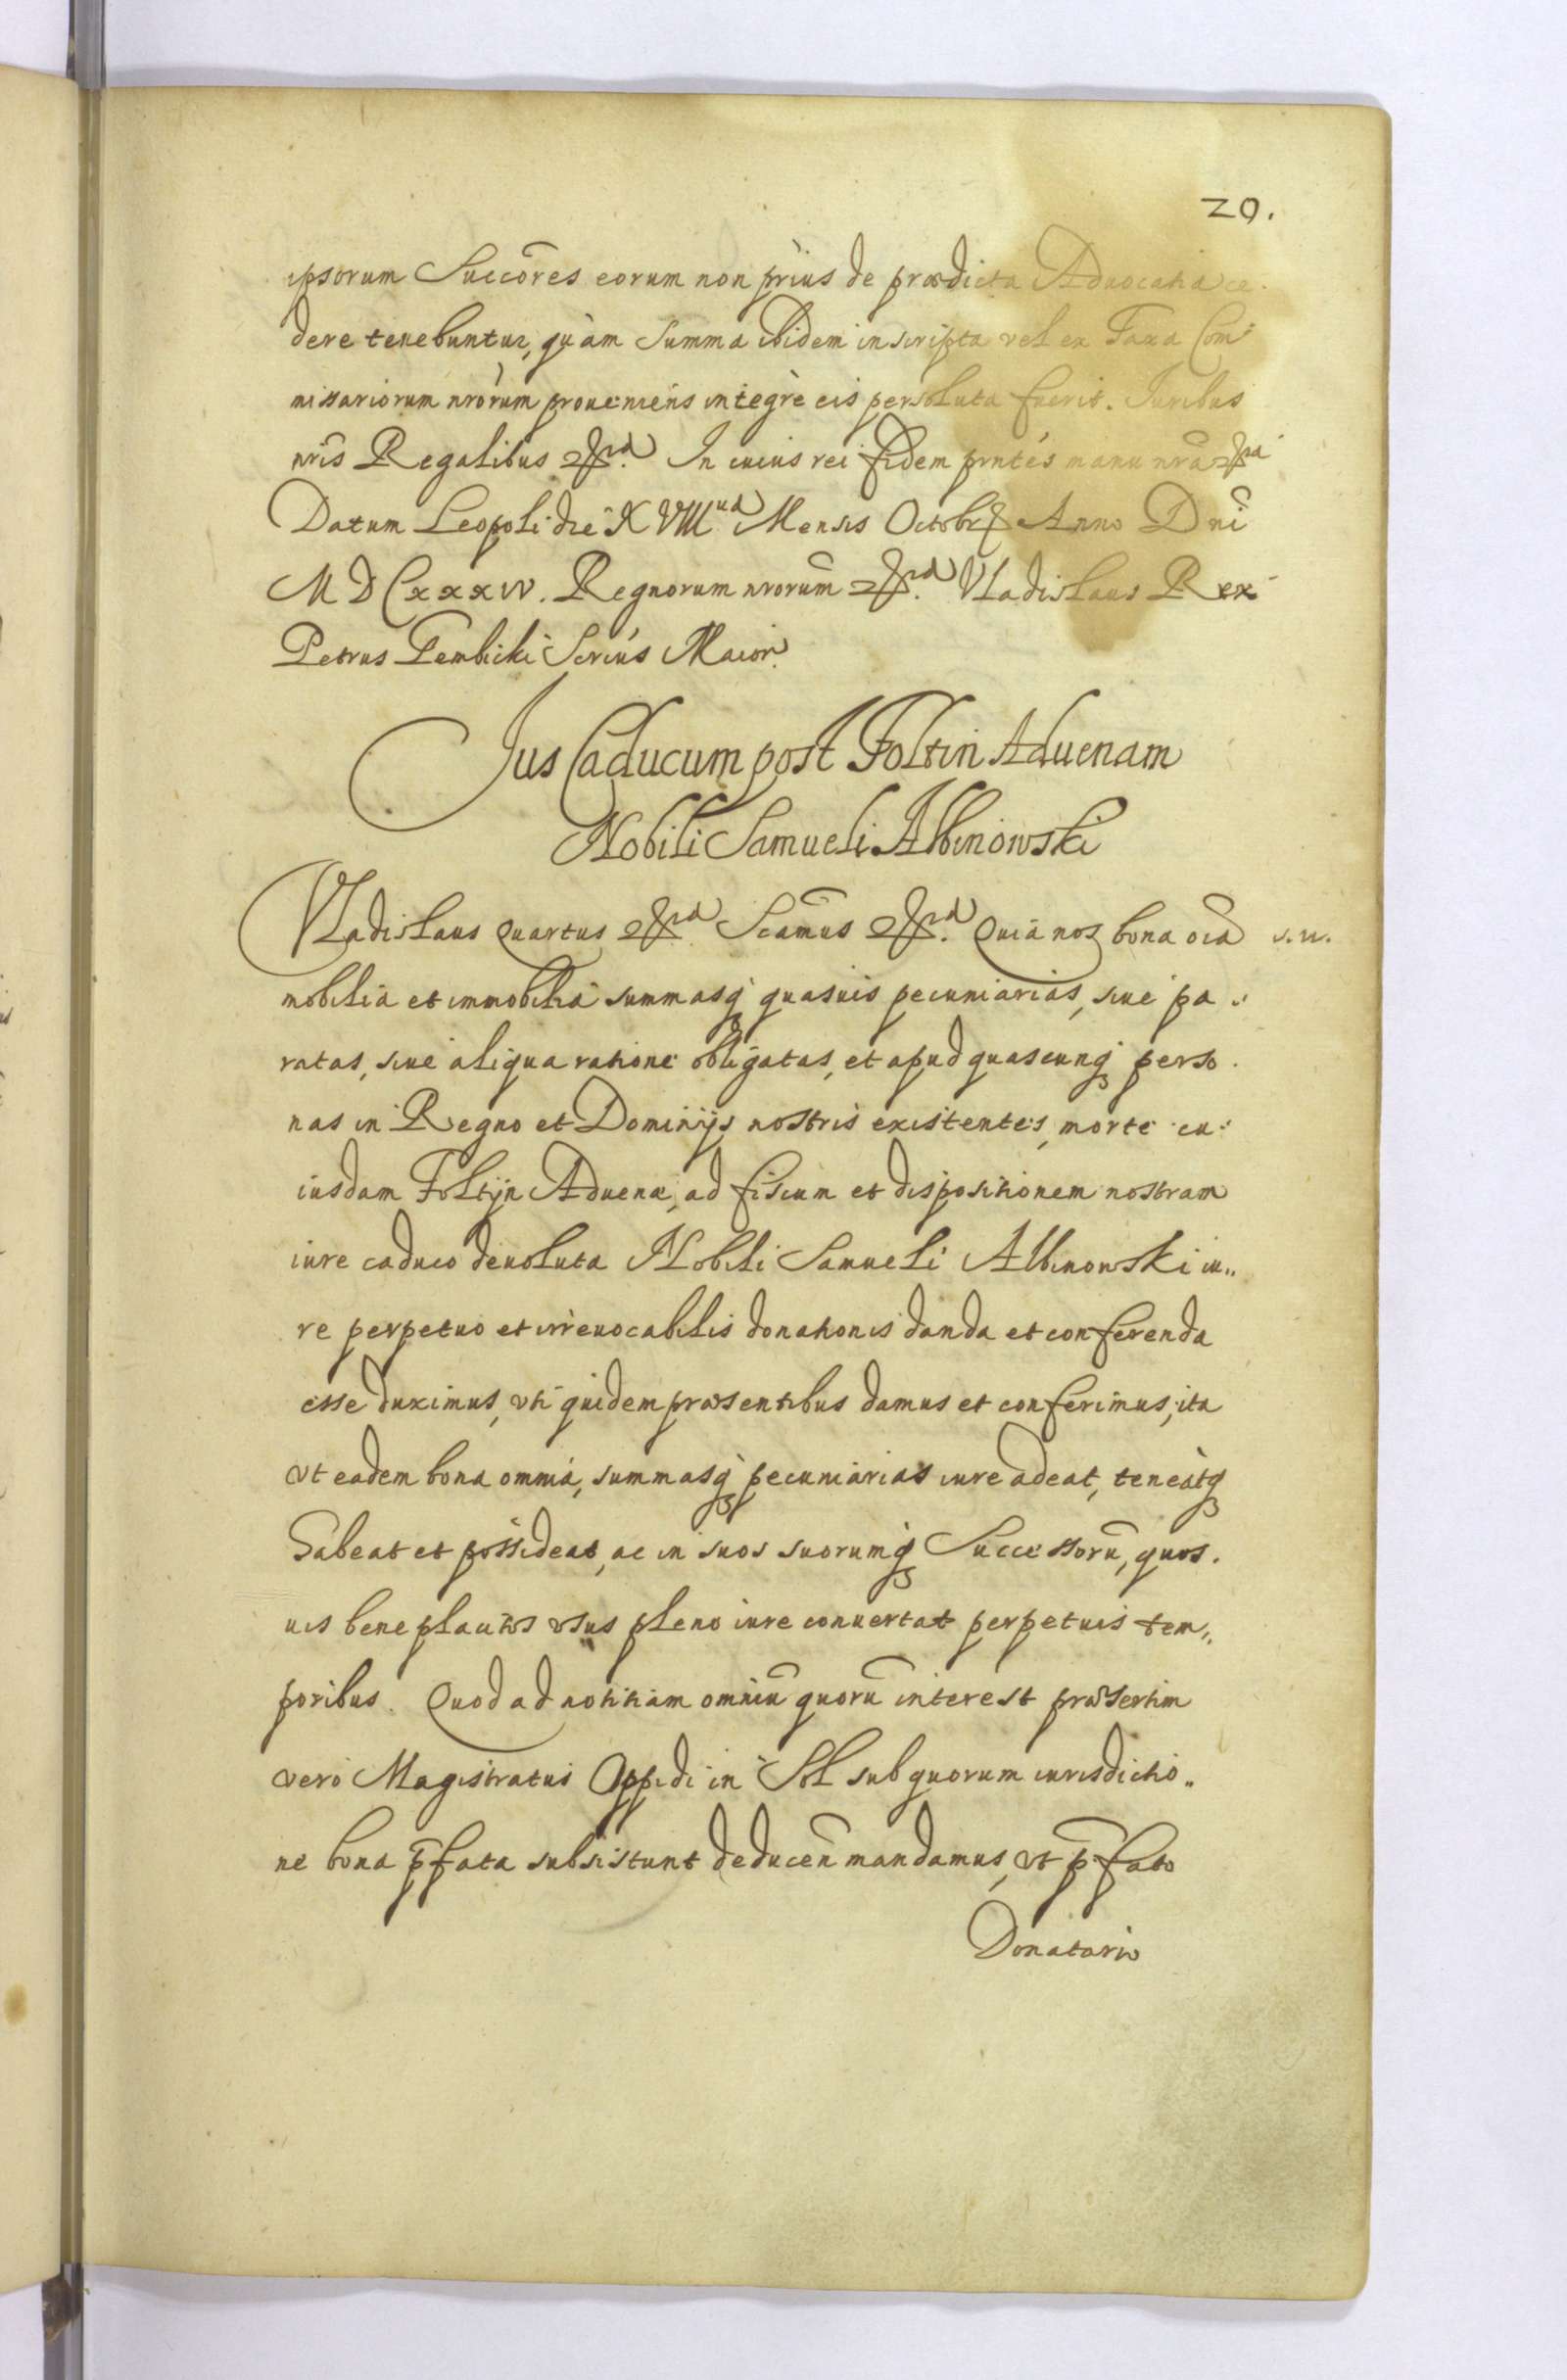 20.
ipsorum Succōres eorum non prius de prædicta Aduocatia ce-
dere tenebuntur, quàm summa ibidem inscripta vel ex Taxa Com
missariorum nrorum proueniens integrè eis persoluta fuerit. Iuribus
nris Regalibus &ra. In cuius rei fidem pntes manu nra &ra
Datum Leopoli die XVIIIua Mensis Octobr Anno Dni
MDCxxxiv. Regnorum nrorum &ra. Vladislaus Rex
Petrus Gembicki Scrius Maior.
Jus Caducum post Foltin Aduenam
Nobili Samueli Albinowski
Vladislaus Quartus &ra. Scamus &ra. Quia nos bona oia s. n.
mobilia et immobilia summasq quasuis pecuniarias, siue pa-
ratas, siue aliqua ratione obligatas, et apud quascunq perso-
nas in Regno et Dominijs nostris existentes, morte cu-
iusdam Foltyn Aduenæ, ad fiscum et dispositionem nostram
iure caduco deuoluta Nobili Samueli Albinowski iu-
re perpetuo et irreuocabilis donationis danda et conferenda
esse duximus, vti quidem præsentibus damus et conferimus, ita
vt eadem bona omnia, summasq pecuniarias iure adeat, teneatq
habeat et possideat, ac in suos suorumq Successorū, quos-
uis beneplacitos vsus pleno iure conuertat perpetuis tem-
poribus. Quod ad notitiam omniū quorū interest præsertim
vero Magistratus Oppidi in Sól sub quorum iurisdictio-
ne bona p̄fata subsistunt deducen̄ mandamus, vt p̄fato
Donatario